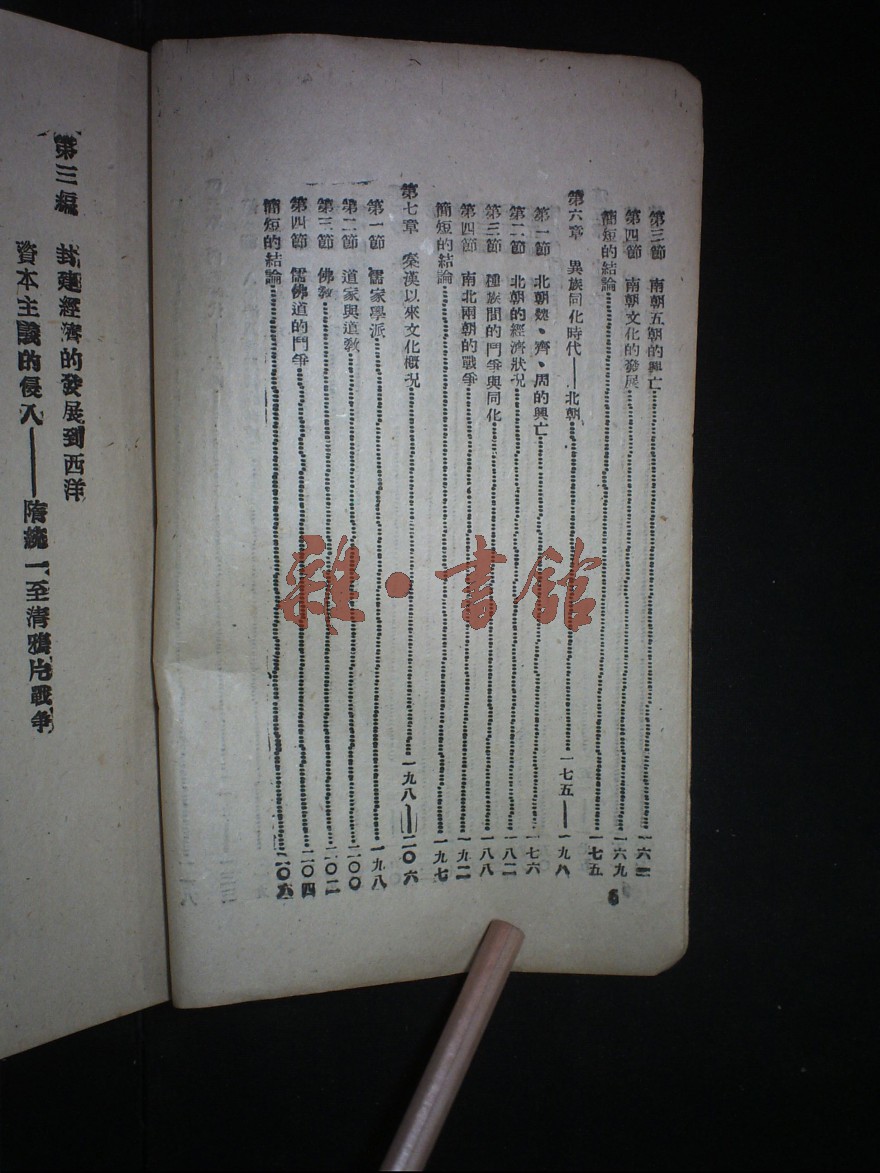 第三節　南朝五朝的興亡……一六二
第四節　南朝文化的發展……一六九
簡短的結論……一七五
第六章　異族同化時代——北朝……一七五——一九八
第一節　北朝魏、齊、周的興亡……一七六
第二節　北朝的經濟狀况……一八二
第三節　種族間的鬥爭與同化……一八八
第四節　南北兩朝的戰爭……一九二
簡短的結論……一九七
第七章　秦漢以來文化概况……一九八——二〇六
第一節　儒家學派……一九八
第二節　道家與道教……二〇〇
第三節　佛教……二〇二
第四節　儒佛道的鬥爭……二〇四
簡短的結論……二〇
6
第三編　封建經濟的發展到西洋
資本主義的侵入——隋統一至清鴉片戰爭
雜·書館